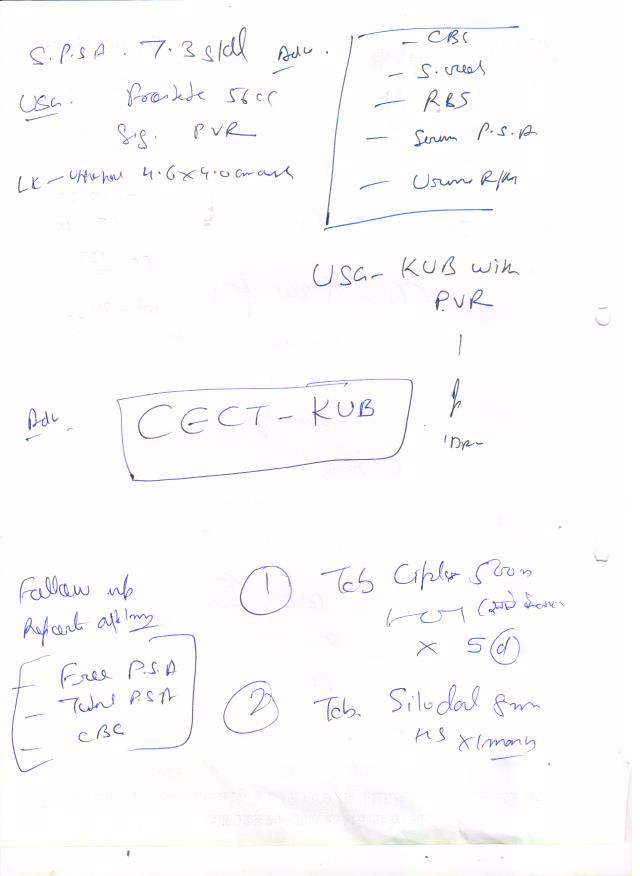 S.P.S.A. 7.3 g/dl
USG. Prostate 56 cc
Sig. PVR
LK - 4.6 x 4.0 cm
Adv.
- CBC
- S. urea
- RBS
- Serum P.S.A
- Urine R/M
USG - KUB with
P.V.R
Adv.
CECT - KUB
Follow up
Repeat aft 1 my
- Free P.S.A
- Total P.S.A
- CBC
① Tab Ciplox 500m
x 5 (d)
② Tab. Silodal 8mm
HS x 1 month